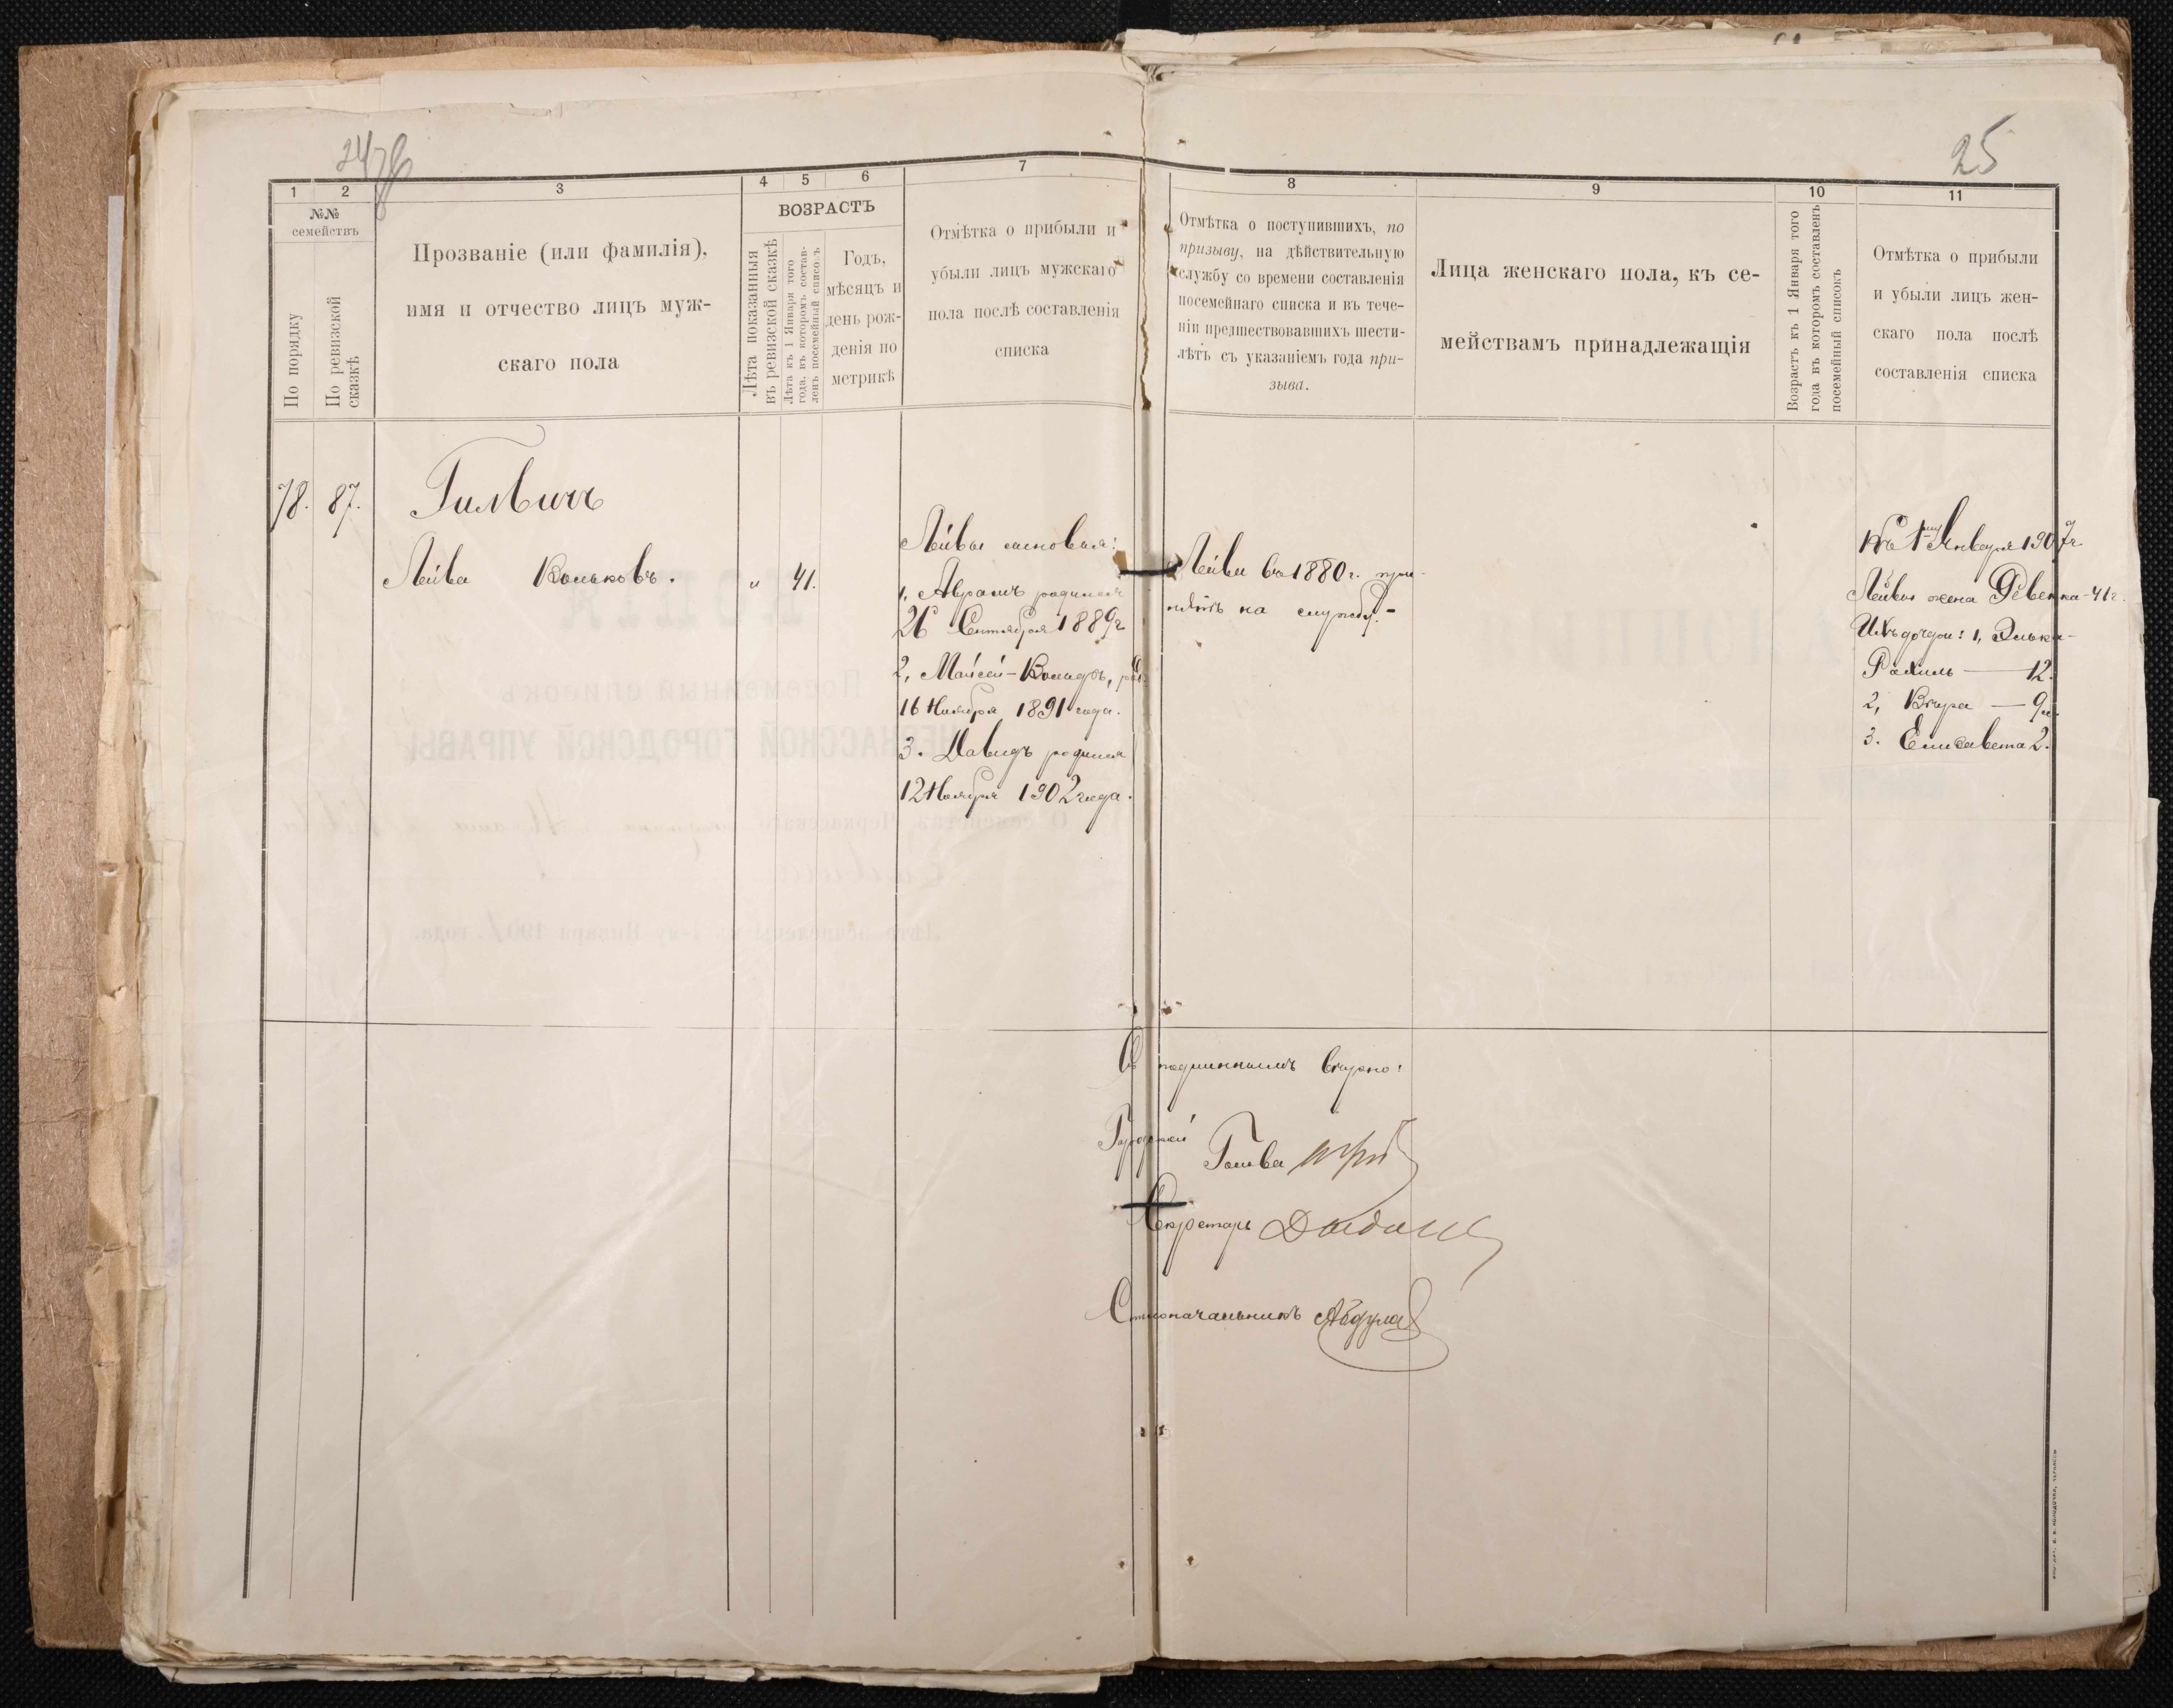 24 78
25
1
2
3
4
5
6
7
8
9
10
11
№№
семействъ
По порядку
По ревизской
сказкѣ
Прозваніе (или фамилія),
имя и отчество лицъ муж-
скаго пола
ВОЗРАСТЪ
Лѣта показанныя
въ ревизской сказкѣ
Лѣта къ 1 Января того
года, въ которомъ состав-
ленъ посемейный списокъ
Годъ,
мѣсяцъ и
день рож-
денія по
метрикѣ
Отмѣтка о прибыли и
убыли лицъ мужскаго
пола послѣ составленія
списка
Отмѣтка о поступившихъ, по
призыву, на дѣйствительную
службу со времени составленія
посемейнаго списка и въ тече-
ніи предшествовавшихъ шести-
лѣтъ съ указаніемъ года при-
зыва.
Лица женскаго пола, къ се-
мействамъ принадлежащія
Возрастъ къ 1 Января того
года въ которомъ составленъ
посемейный списокъ
Отмѣтка о прибыли
и убыли лицъ жен-
скаго пола послѣ
составленія списка
78. 87.
Лейба Вольковъ. " 41.
Лейбы сыновья:
1, Абрамъ родился
26 Сентября 1889 г.
2, Мойсей-Вольфъ, род.
16 Ноября 1891 года.
3. Давидъ родился
12 Ноября 1902 года.
Лейба въ 1880 г. при-
нятъ на службу.-
Къ 1му Января 1907 г.
Лейбы жена Ревекка-41 г.
Ихъ дочери: 1, Элька-
Рахиль — 12.
2, Вѣра — 9 и
3. Елисавета 2.
Съ подлиннымъ вѣрно:
Городской
Голова
Секретарь
Столоначальникъ